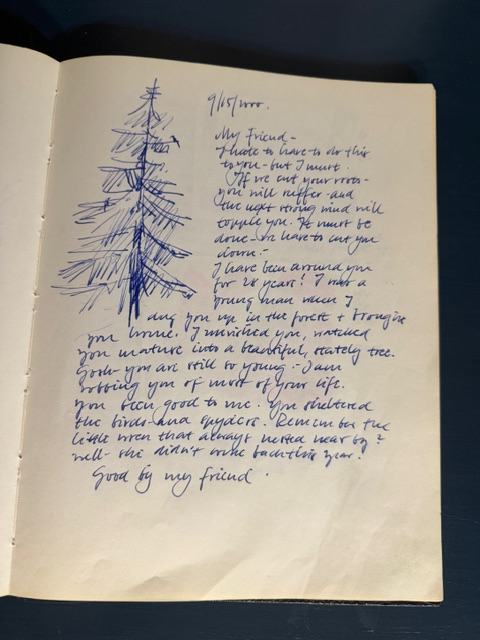 9/15/2000.
My Friend -
I hate to have to do this
to you - but I must.
If we cut your roots -
you will suffer - and
the next strong wind will
topple you. It must be
done - we have to cut you
down. -
I have been around you
for 28 years! I was a
young man when I
dug you up in the forest + brought
you home. I nurished you, watched
you mature into a beautiful, stately tree.
Gosh - you are still so young - I am
robbing you of most of your life.
You been good to me. You sheltered
the birds and spyders. Remember the
little wren that always nested near by?
well - she didn't come back this year!
Good by my friend.